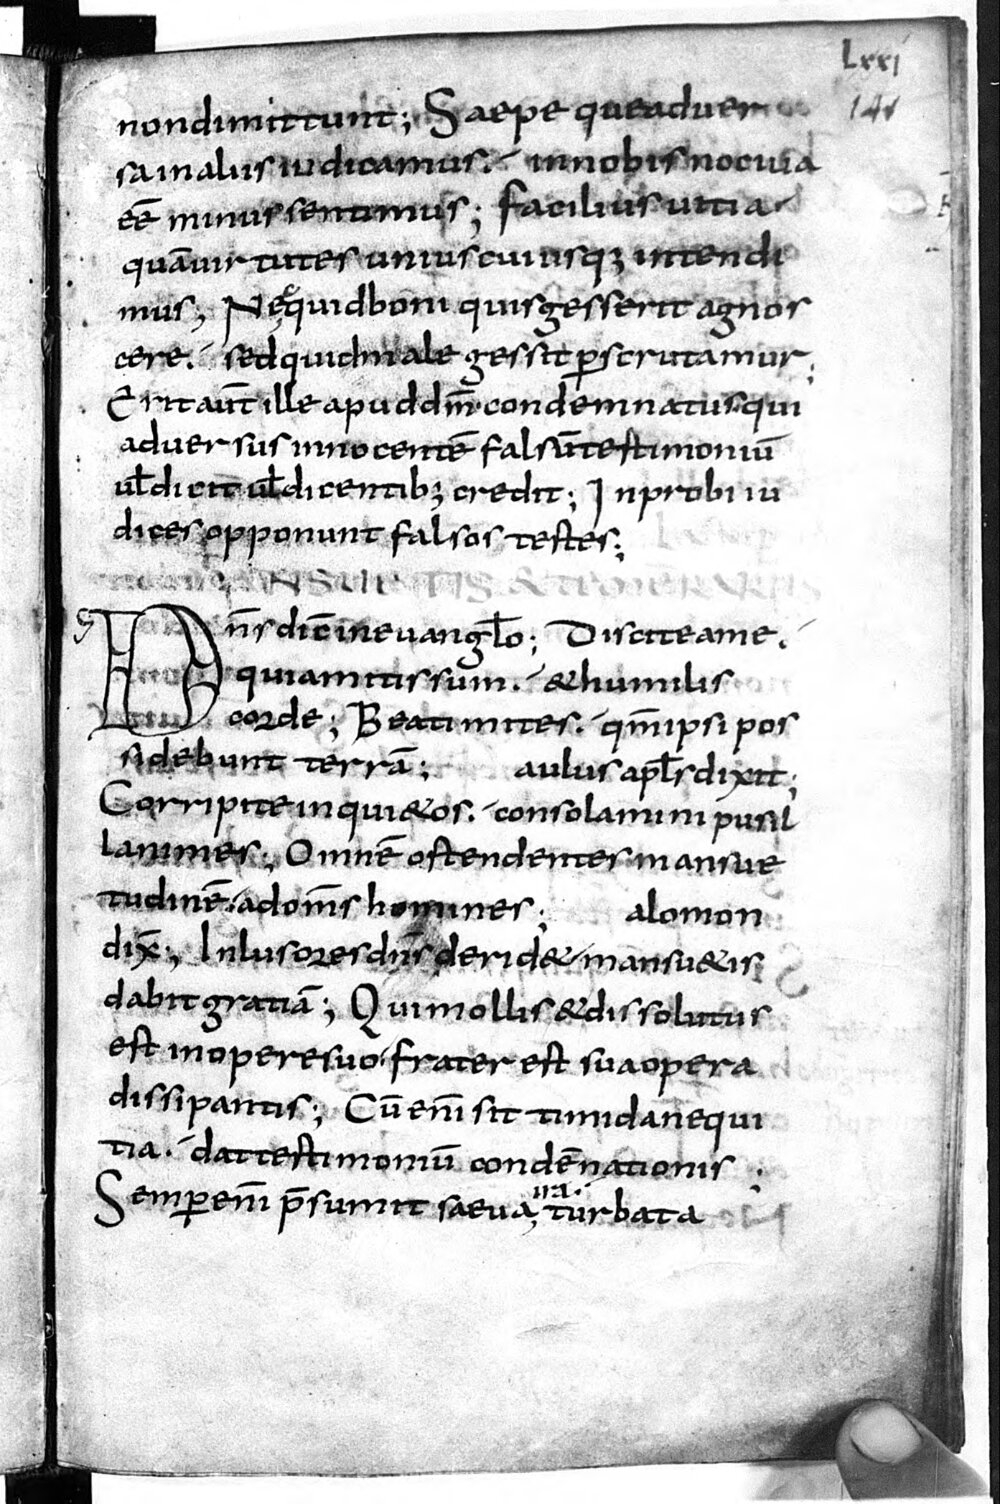 Lxxi
141
nondimittunt; Saepe queaduer
sainaliis iudicamus. innobis nociua
eē minus sentimus; Facilius uitia
quāuirtutes uniuscuiusq; intendi
mus; Nequidboni quisgesserit agnos
cere. sedquidmale gessit pscrutamur;
Erit aut̄ ille apuddm̄ condemnatus qui
aduersus innocentē falsūtestimoniū
ul̄dicit ul̄dicentib; credit; Inprobi iu
dices opponunt falsos testes;
Dn̄s dic̄ ineuangl̄o; Disciteame.
quiamitissum. &humilis
corde; Beatimites. qm̄ipsi pos
sidebunt terrā; aulus apl̄s dixit;
Corripite inqui&os. consolamini pusil
lanimes; Omnē ostendentes mansue
tudinē. adom̄s homines; alomon
dix̄; Inlusores dn̄s derid& mansu&is
dabit gratiā; Qui mollis & dissolutus
est inoperesuo. frater est sua opera
dissipantis; Cū enī sit timida nequi
tia. dat testimoniū condēnationis;
Semp enī p̄sumit saeua, turbata